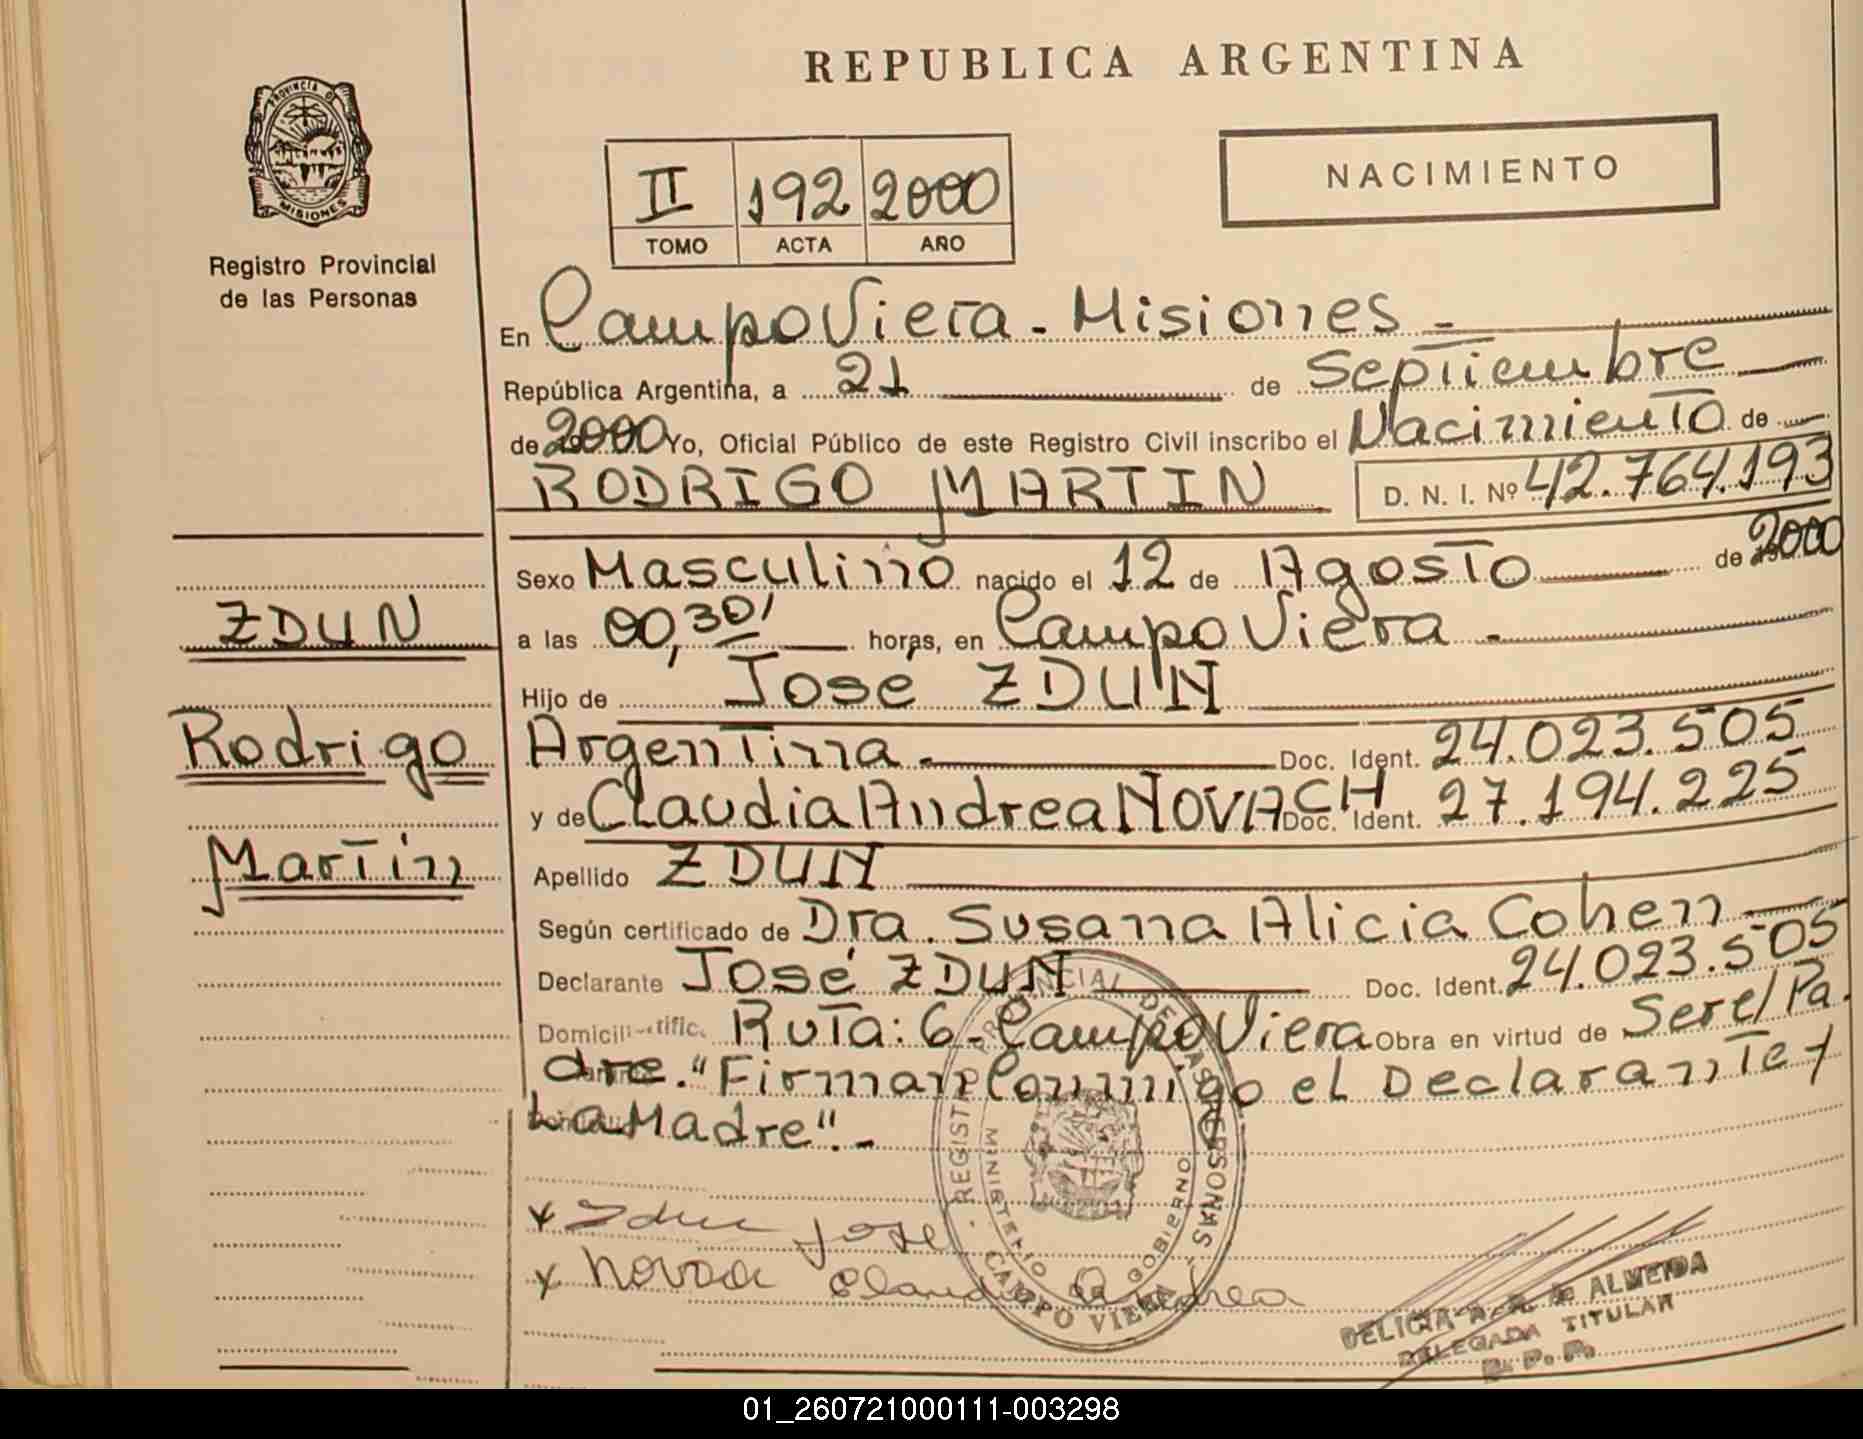 REPUBLICA ARGENTINA
PROVINCIA DE
MISIONES
Registro Provincial
de las Personas
II 192 2000
TOMO ACTA AÑO
NACIMIENTO
En Campo Viera - Misiones -
República Argentina, a 21 de Septiembre
de 2000 Yo, Oficial Público de este Registro Civil inscribo el Nacimiento de
RODRIGO MARTIN D. N. I. Nº 42.764.193
Sexo Masculino nacido el 12 de Agosto de 2000
ZDUN
a las 00,30' horas, en Campo Viera -
Hijo de José ZDUN
Rodrigo
Argentina - Doc. Ident. 24.023.505
y de Claudia Andrea NOVACH Doc. Ident. 27.194.225
Martín
Apellido ZDUN
Según certificado de Dra. Susana Alicia Cohen
Declarante José ZDUN Doc. Ident. 24.023.505
Domicili Ruta: 6 - Campo Viera Obra en virtud de Ser el Pa
dre. "Firman Conmigo el Declarante y
La Madre". -
x Zdun José
x Novach Claudia Andrea
REGISTRO PROVINCIAL DE LAS PERSONAS
MINISTERIO GOBIERNO
CAMPO VIERA
DELICIA A. R. de ALMEIDA
DELEGADA TITULAR
R. P. P.
01_260721000111-003298